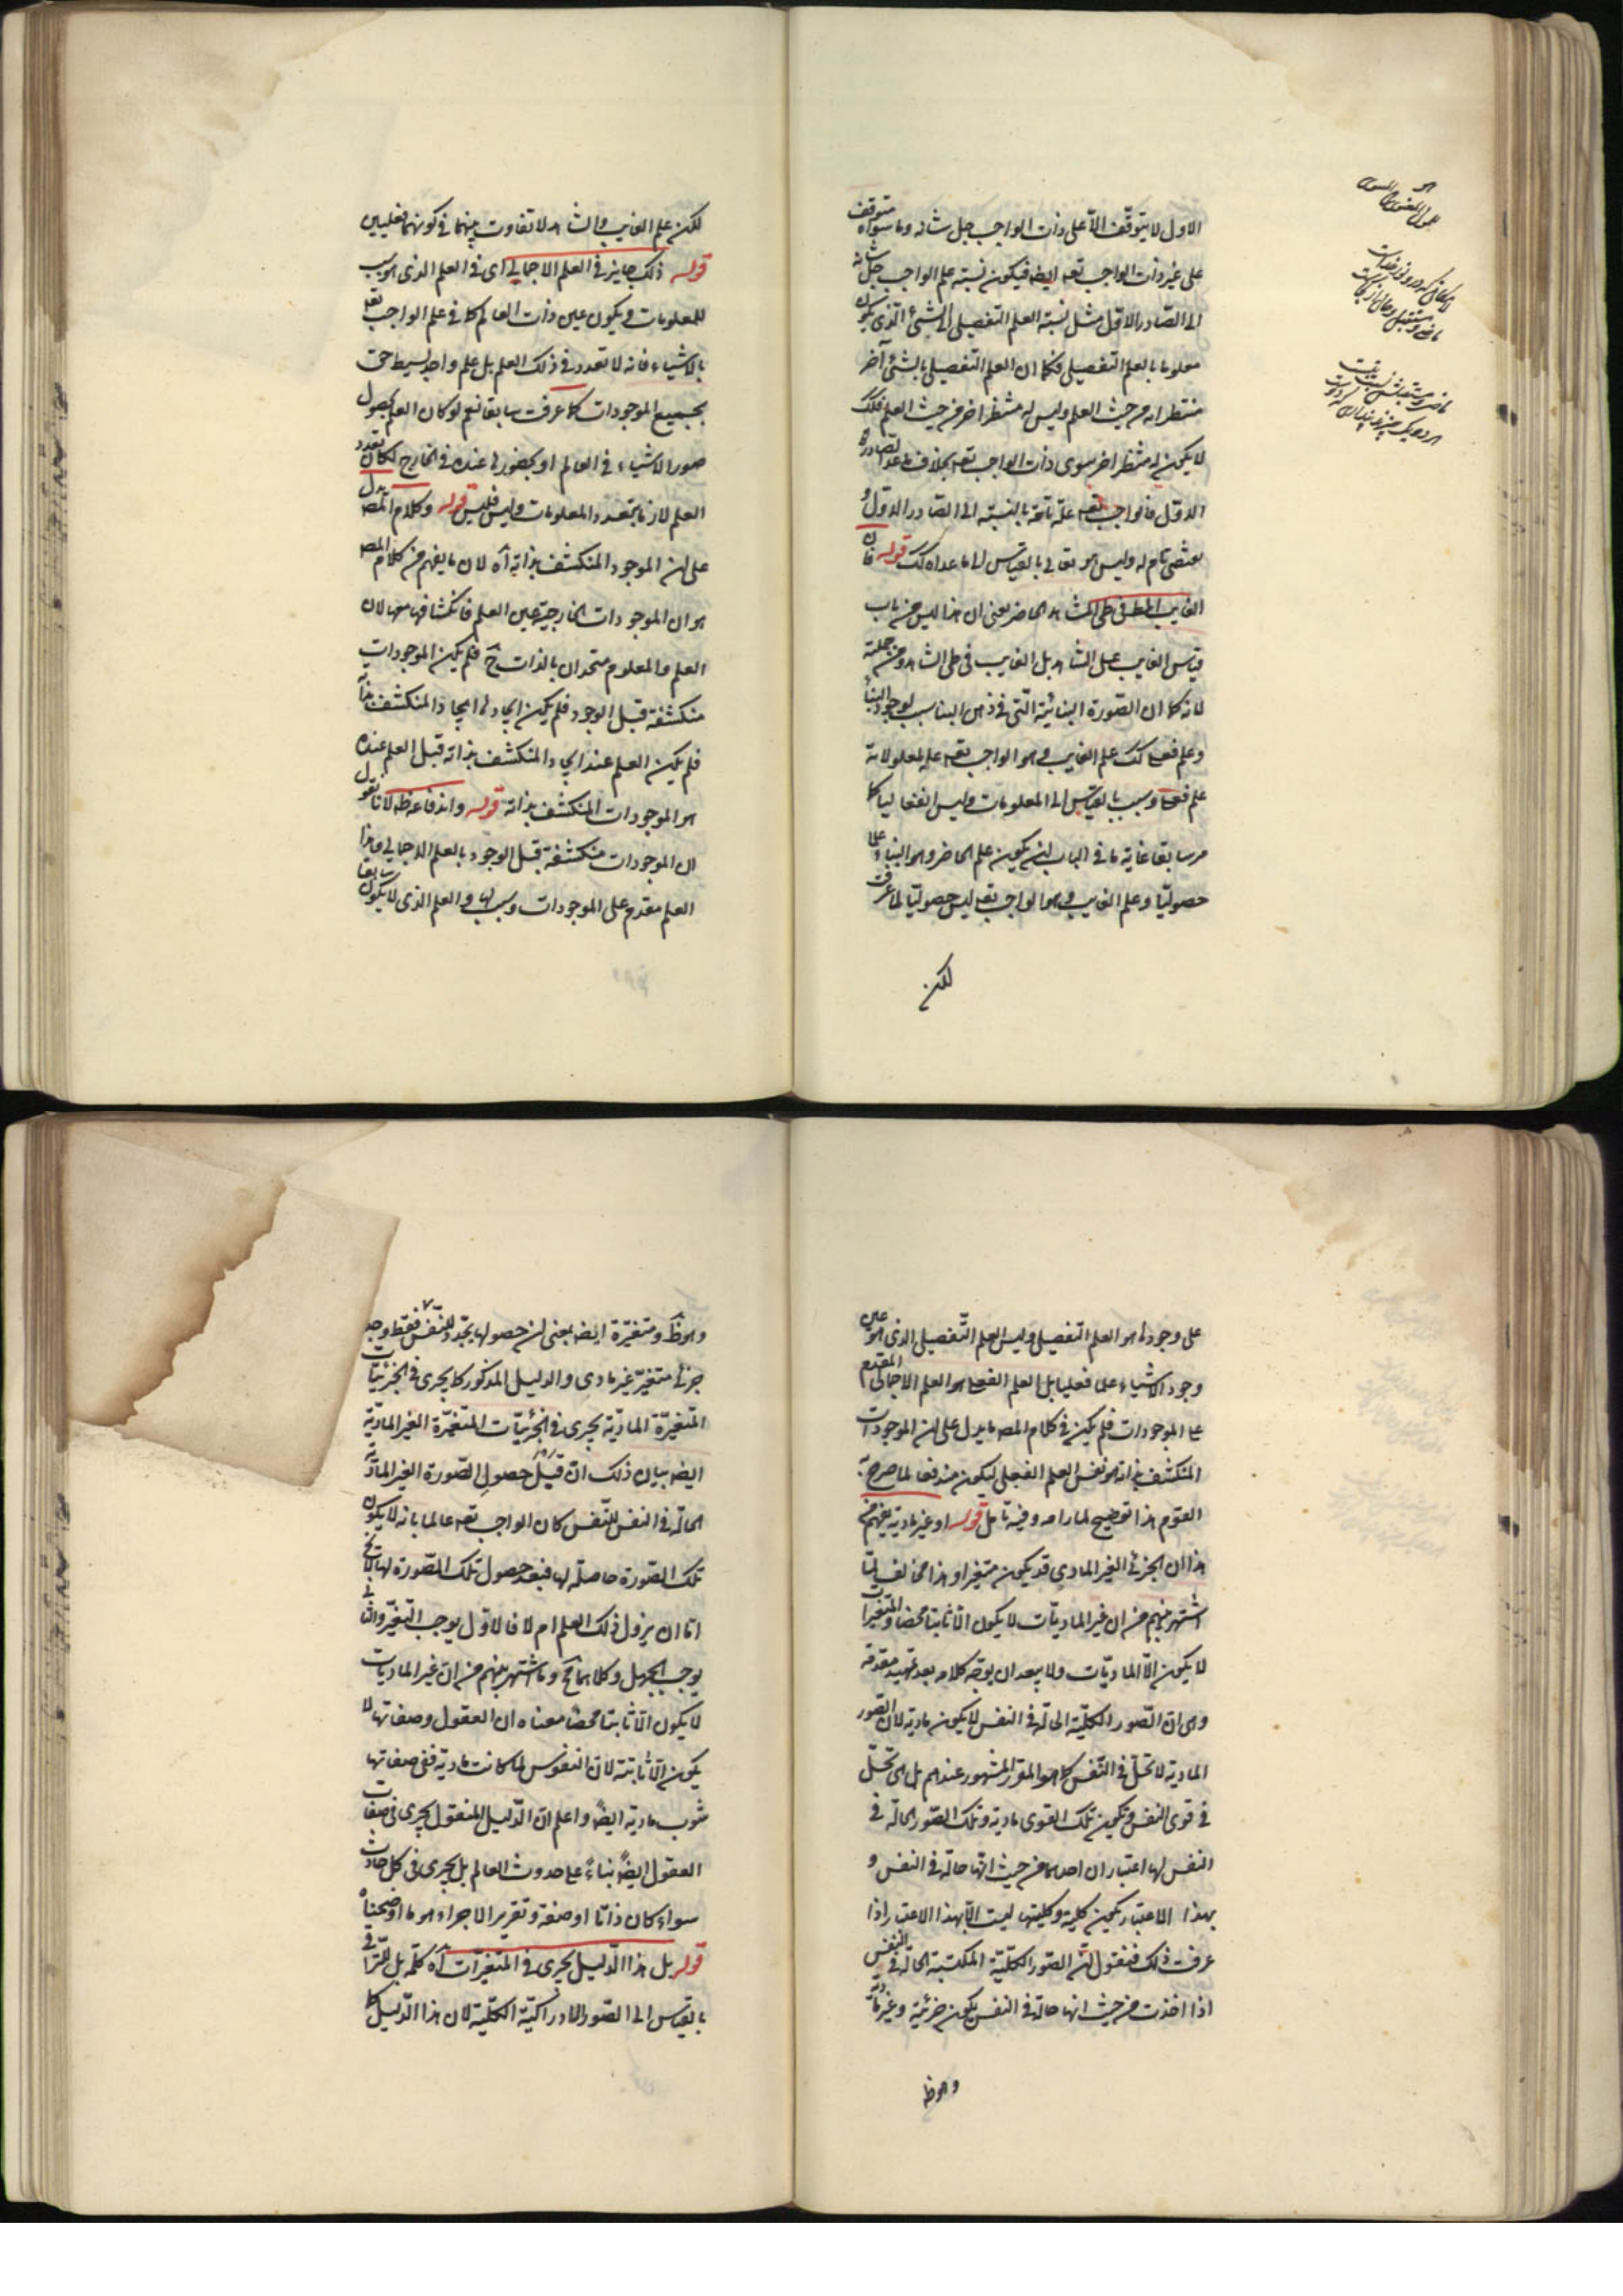 الاول لا يتوقّف الّا على ذات الواجب جل شانه وما سواه متوقف
على غير ذات الواجب تعه ايضه فيكون نسبة علم الواجب جل شانه
الى الصادر الاوّل مثل نسبة العلم التفصيلى الى الشئ الّذى يكون
معلوما بالعلم التفصيلى فكما ان العلم التفصيلى بالشئ آخر
منتظرا من حيث العلم وليس له منتظر اخر من حيث العلم فكك
لا يكون له منتظر اخر سوى ذات الواجب تعه بخلاف ما عدا الصادر
الاوّل فالواجب تعه علّة تامّة بالنسبة الى الصادر الاوّل و
مقتضى تام له وليس هو تعالى بالقياس الى ما عداه كك قوله فان
الغايب المط فى طى الشاهد الحاضر يعنى ان هذا ليس من باب
قياس الغايب على الشاهد بل الغايب فى طى الشاهد ومن جملته
لانه كما ان الصّورة البنائيّة الّتى فى ذهن البنا سبب لوجود البناء
وعلم فعلى كك علم الغايب وهو الواجب تعه علم لمعلولاته
علم فعلى وسبب بالقياس الى المعلومات وليس انفعاليا كما
مر سابقا غاية ما فى الباب ان يكون علم الحاضر وهو البناء علما
حصوليّا وعلم الغايب وهو الواجب تعه ليس حصوليّا لما عرفت
لكن
لكن علم الغايب والشاهد لا تفاوت بينهما فى كونهما فعليين
قوله ذلك جايز فى العلم الاجمالى اى فى العلم الذى هو سبب
للمعلومات ويكون عين ذات العالم كما فى علم الواجب تعه
بالاشياء فانه لا تعدد فى ذلك العلم بل علم واحد بسيط حق
بجميع الموجودات كما عرفت سابقا نعم لو كان العلم بحصول
صور الاشياء فى العالم او بحضورها عنده فى الخارج لكان تعدد
العلم لازما بتعدد المعلومات وليس فليس قوله وكلام المصه يدل
على ان الموجود المنكشف بذاته آه لان ما يفهم من كلام المصه
هو ان الموجودات الخارجيّة عين العلم فانكشافها معها لان
العلم والمعلوم متحدان بالذات ح فلم يكن الموجودات
منكشفة قبل الوجود فلم يكن ايجادها ايجاد المنكشف بذاته
فلم يكن العلم عند ايجاد المنكشف بذاته قبل العلم عنده
هو الموجودات المنكشف بذاته قوله واندفاعه ظه لانا نقول
ان الموجودات منكشفة قبل الوجود بالعلم الاجمالى وهذا
العلم مقدم على الموجودات وسبب لها والعلم الذى لا يكون سابقا
على وجودها هو العلم التفصيلى وليس العلم التّفصيلى الذى هو عين
وجود الاشياء علما فعليا بل العلم الفعلى هو العلم الاجمالى المقدم
على الموجودات فلم يكن فى كلام المصه ما يدل على ان الموجودات
المنكشف بذاته هو نفس العلم الفعلى ليكون مندفعا لما صرح به
القوم هذا توضيح لمرامه وفيه تامل قوله او غير مادية يفهم من
هذا ان الجزئى الغير المادى قد يكون متغيرا وهذا مخالف لما
اشتهر بينهم من ان غير الماديّات لا يكون الّا ثابتا محضا والمتغيرات
لا يكون الّا الماديّات ولا يبعد ان يوجّه كلامه بعد تمهيد مقدمة
وهى ان الصّور الكليّة الحالّة فى النفس لا يكون مادية لان الصور
المادية لا تحلّ فى النّفس كما هو المقرر المشهور عندهم بل هى تحلّ
فى قوى النفس ويكون تلك القوى مادية وتلك الصّور الحالّة فى
النفس لها اعتباران احدهما من حيث انّها حالّة فى النفس و
بهذا الاعتبار يكون كلية وكليتها ليست الّا بهذا الاعتبار اذا
عرفت ذلك فنقول انّ الصّور الكليّة المكتسبة الحالّة فى النفس
اذا اخذت من حيث انها حالّة فى النفس يكون جزئية وغير مادّية
وهو ظه
وهو ظه ومتغيّرة ايضه بمعنى ان حصولها يتجدّد للنفس فقط وجد
جزئى متغيّر غير مادى والدليل المذكور كما يجرى فى الجزئيّات
المتغيّرة الماديّة يجرى فى الجزئيّات المتغيّرة الغير الماديّة
ايضه بيان ذلك انّ قبل حصول الصّورة الغير المادّية
الحالّة فى النفس للنّفس كان الواجب تعه عالما بانه لا يكون
تلك الصّورة حاصلة لها فبعد حصول تلك الصّورة لها لا يخ
امّا ان يزول ذلك العلم ام لا فالاوّل يوجب التّغيّر والثانى
يوجب الجهل وكلاهما مح وما اشتهر بينهم من انّ غير الماديات
لا يكون الّا ثابتا محضا معناه ان العقول وصفاتها لا
يكون الّا ثابتة لانّ النفوس لما كانت مادية ففى صفاتها
شوب مادية ايضا واعلم انّ الدّليل المنقول يجرى فى صفات
العقول ايضا بناء على حدوث العالم بل يجرى فى كل حادث
سواء كان ذاتا او صفة وتقرير الاجراء هو ما اوضحناه
قوله بل هذا الدّليل يجرى فى المتغيّرات آه كلمة بل للترّقى
بالقياس الى الصّور الادراكيّة الكليّة لان هذا الدّليل كما